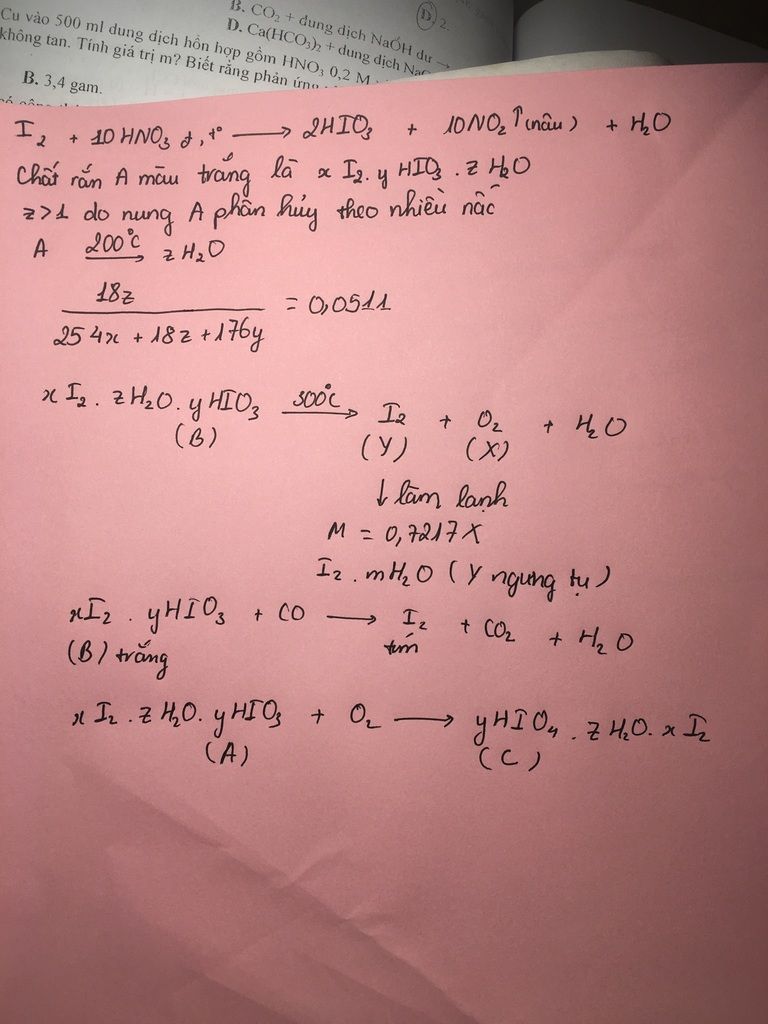 B. CO₂ + dung dịch NaOH dư →
D. 2.
D. Ca(HCO₃)₂ + dung dịch
Cu vào 500 ml dung dịch hỗn hợp gồm HNO₃ 0,2 M
không tan. Tính giá trị m? Biết rằng phản ứng
B. 3,4 gam.
I₂ + 10HNO₃ đ, t° → 2HIO₃ + 10NO₂↑(nâu) + H₂O
Chất rắn A màu trắng là x I₂. y HIO₃ . z H₂O
z>1 do nung A phân hủy theo nhiều nấc
A 200°C → z H₂O
18z
= 0,0511
254x + 18z + 176y
x I₂ . z H₂O. y HIO₃ 300°C → I₂ + O₂ + H₂O
(B) (Y) (X)
↓ làm lạnh
M = 0,7217X
I₂ . mH₂O (Y ngưng tụ)
xI₂ . yHIO₃ + CO → I₂ + CO₂ + H₂O
(B) trắng tím
x I₂ . z H₂O. y HIO₃ + O₂ → y HIO₄ . z H₂O. x I₂
(A) (C)